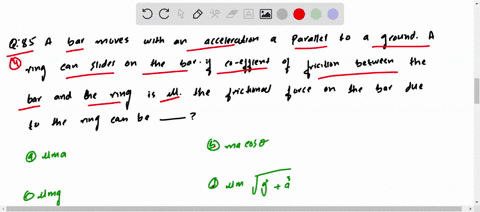 Q:85 A bar moves with an acceleration a parallel to a ground. A
(4) ring can slides on the bar. if co-effient of friction between the
bar and the ring is μ. the frictional force on the bar due
to the ring can be ___ ?
(a) μma
(b) ma cosθ
(c) μmg
(d) μm √(g² + a²)